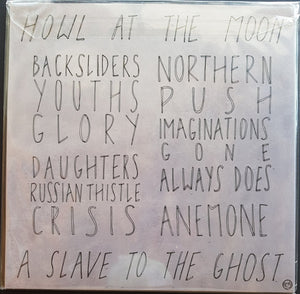 HOWL AT THE MOON
BACKSLIDERS
YOUTHS
GLORY
DAUGHTERS
RUSSIAN THISTLE
CRISIS
NORTHERN
PUSH
IMAGINATIONS
GONE
ALWAYS DOES
ANEMONE
A SLAVE TO THE GHOST